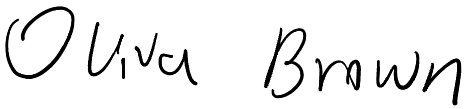 Oliva Brown